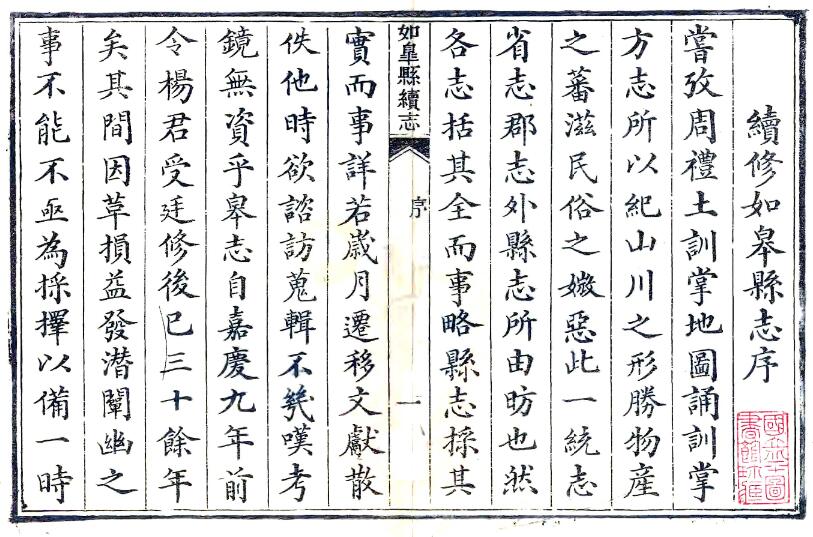 續修如皋縣志序
嘗攷周禮土訓掌地圖誦訓掌
方志所以紀山川之形勝物產
之蕃滋民俗之媺惡此一統志
省志郡志外縣志所由昉也然
各志括其全而事略縣志採其
如皐縣續志
序
一
實而事詳若歲月遷移文獻散
佚他時欲諮訪蒐輯不幾嘆考
鏡無資乎皋志自嘉慶九年前
令楊君受廷修後已三十餘年
矣其間因革損益發潛闡幽之
事不能不亟為採擇以備一時